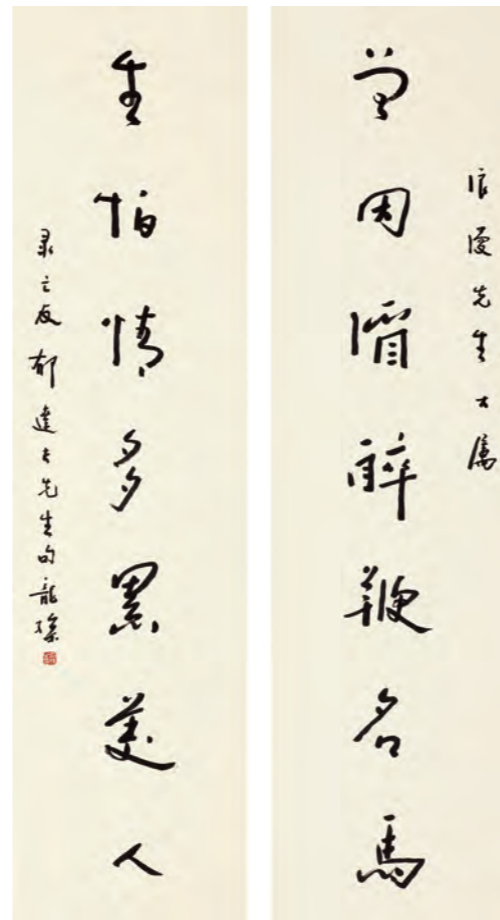 漫先生大属
曾因醉鞭名馬
生怕情多累美人
录亡友郁達夫先生句龍